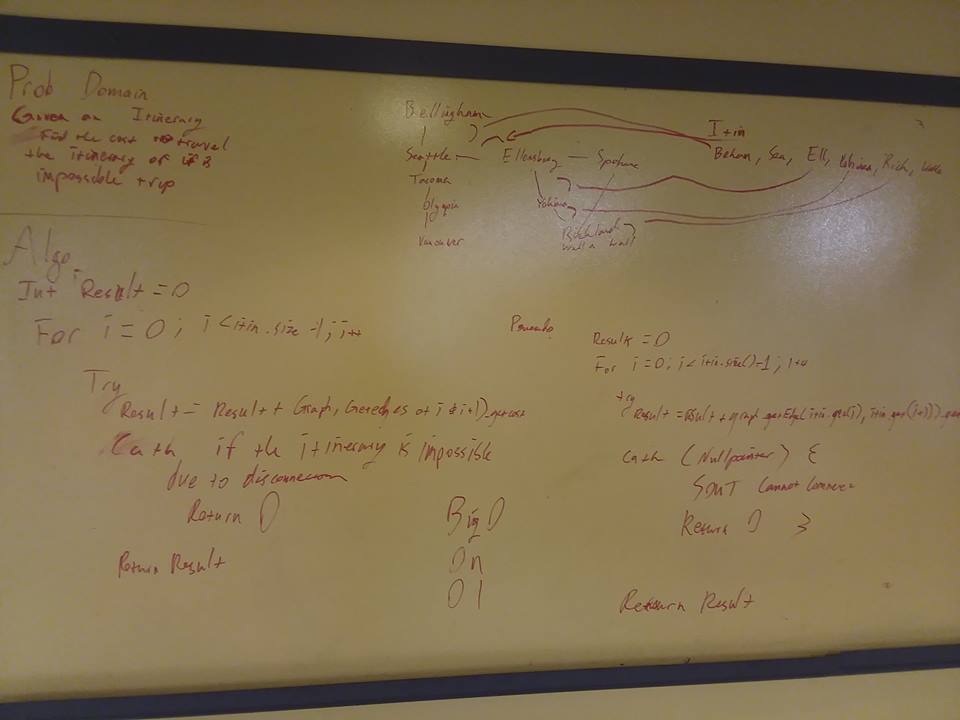 Prob Domain
Given an Itinerary
Find the cost to travel
the itinerary or if is
impossible trip
Bellingham
Seattle — Ellensburg — Spokane
Tacoma
Olympia
Vancouver
Yakima
Richland
Walla Wall
Itin
Beham, Sea, Ell, Yakima, Rich, Walla
Algo
Int Result = 0
For i = 0 ; i < itin.size -1 ; i++
Try
Result = Result + Graph, Getedges at i & i+1).getcost
Catch if the itinerary is impossible
due to disconnecion
Return 0
Return Result
Big O
On
O1
Pseudo
Result = 0
For i = 0 ; i < itin.size()-1 ; i++
try
Result = Result + graph.getEdge(itin.get(i), itin.get(i+1)).get
Catch (Nullpointer) {
SOUT Cannot Connect
Return 0 }
Return Result